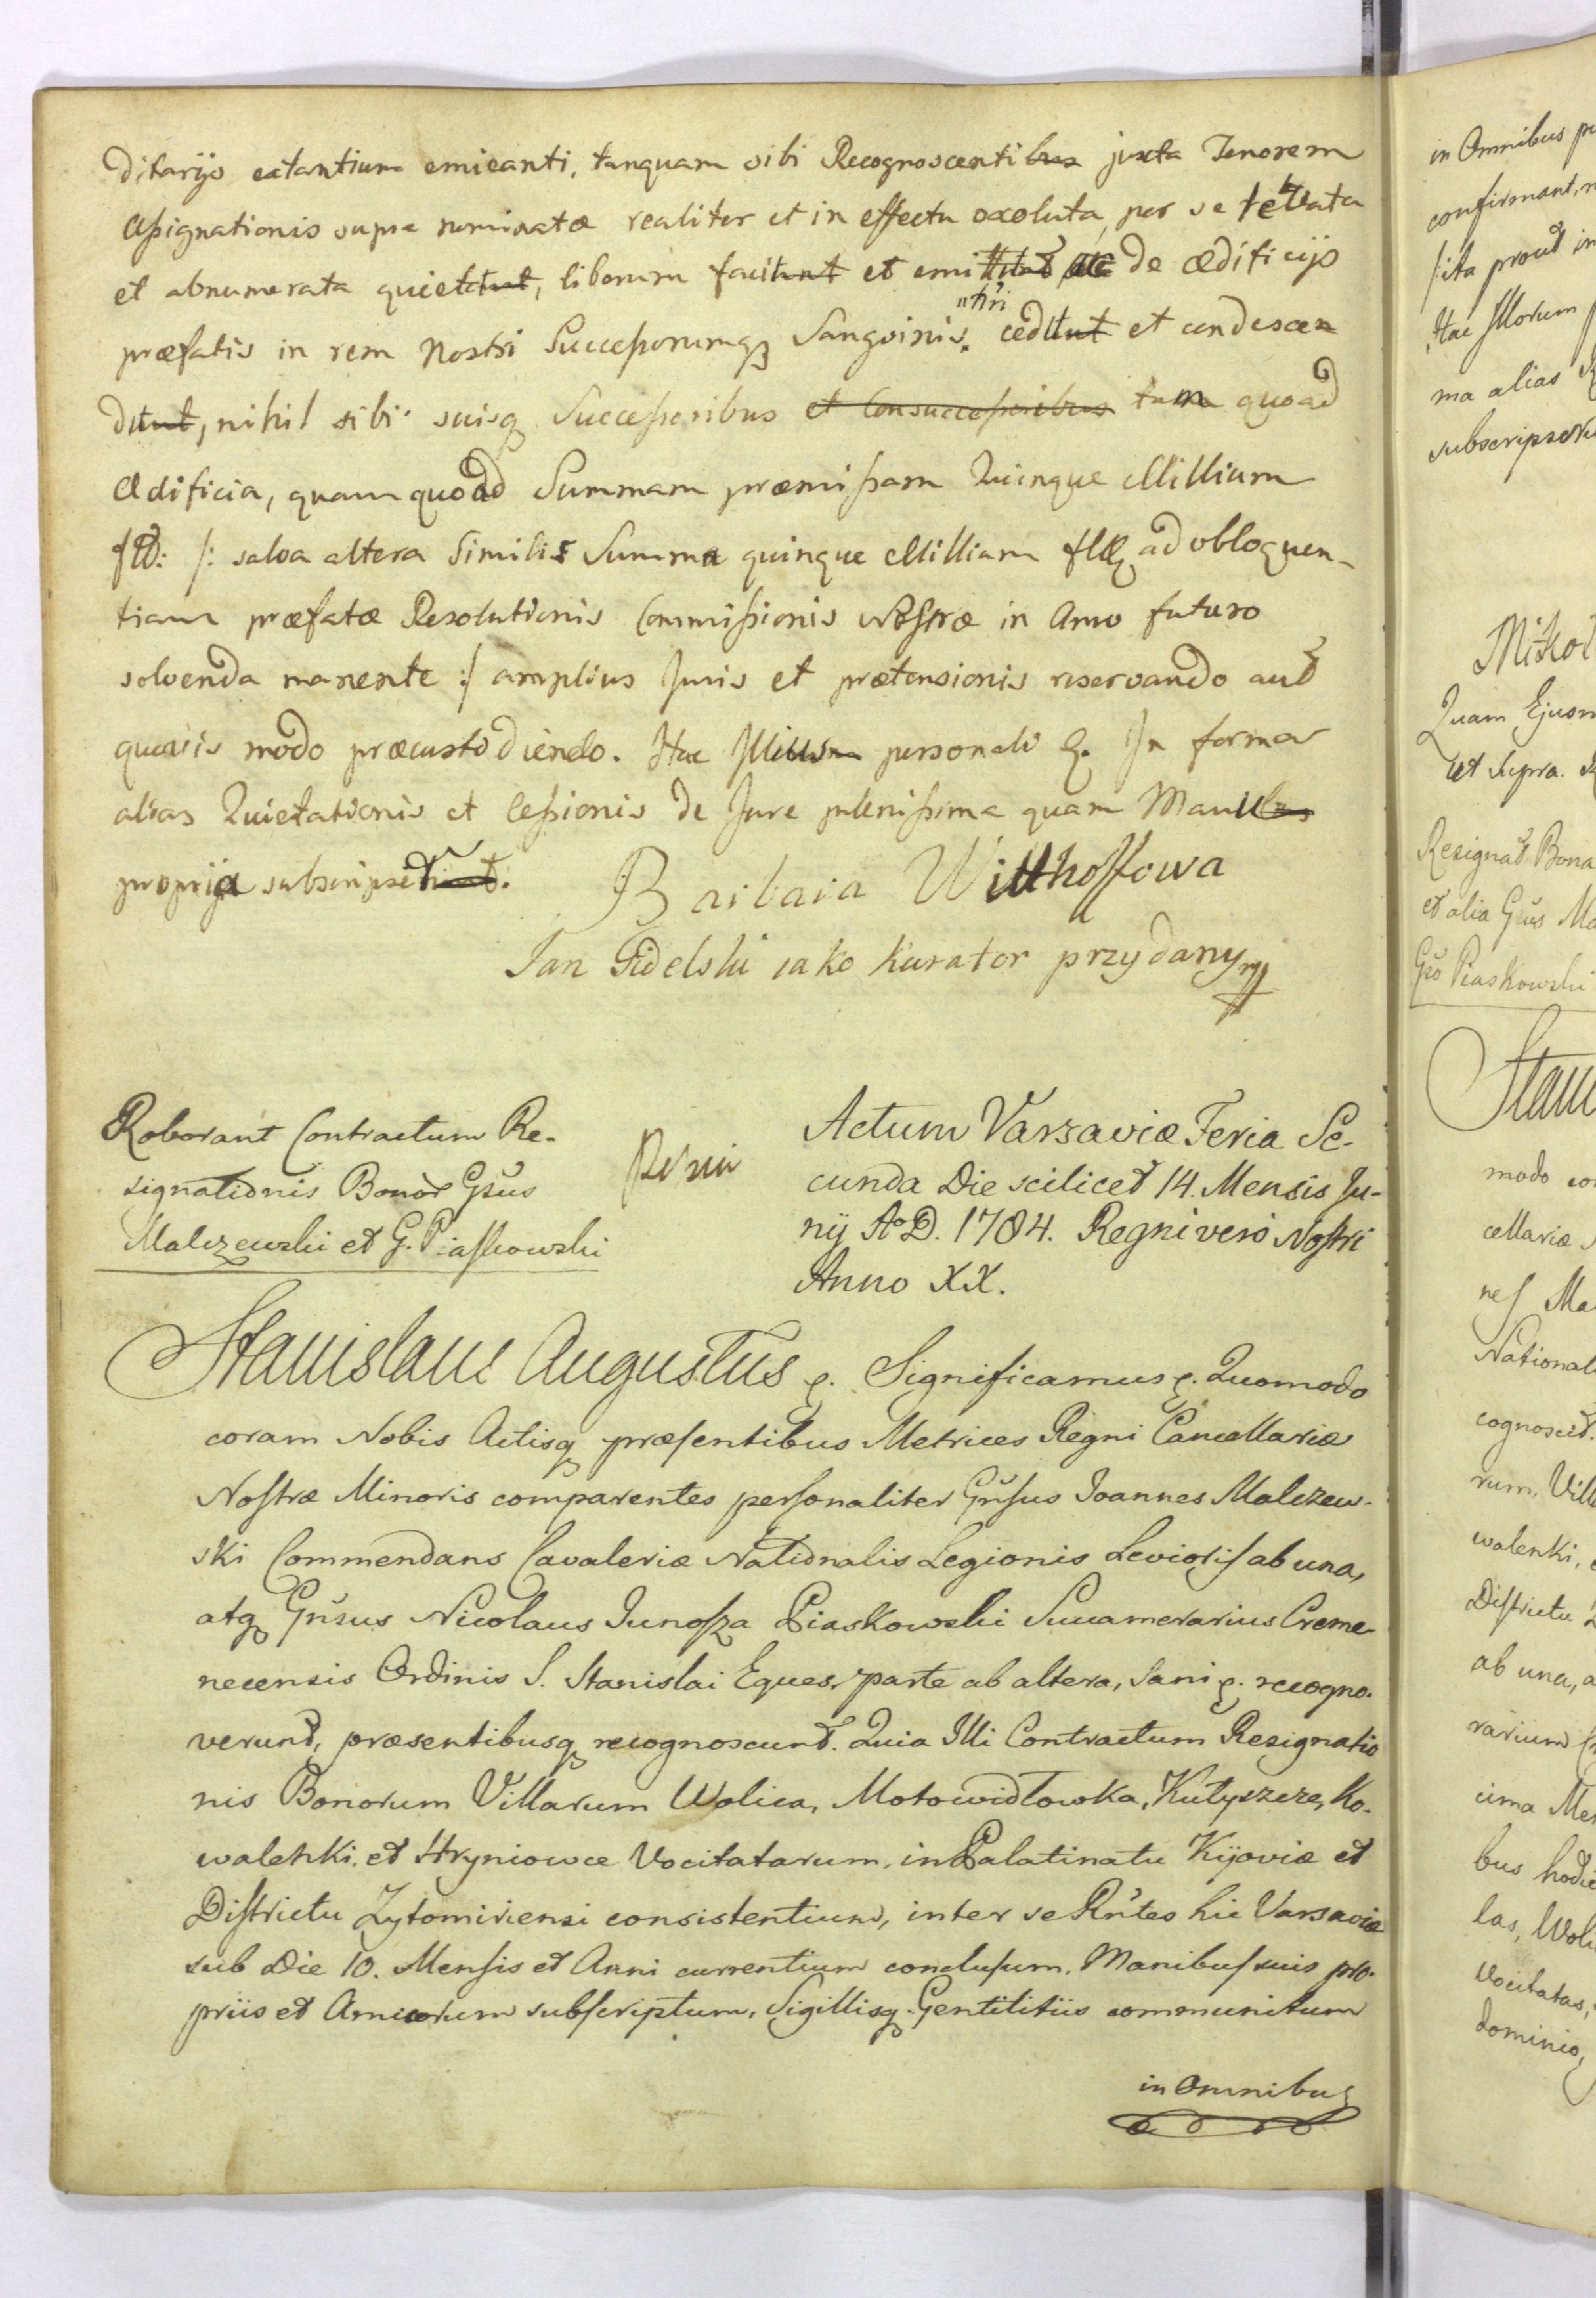 ditarijs extantium emicanti, tanquam sibi Recognoscentibus juxta Tenorem
Assignationis supra nominatæ realiter et in effectu exoluta, per se levata
et abnumerata quietat, liberum facit et emittit de ædificijs
præfatis in rem Nostri Successorumq Sangvinis "nri cedit et condescen
dit, nihil sibi suisq Successoribus et Consuccessoribus tam quoad
Ædificia, quam quoad Summam præmissam Quinque Millium
flor: /: salva altera simili Summa quinque Millium ad obloquen-
tiam præfatæ Resolutionis Commissionis Nostræ in Anno futuro
solvenda manente :/ amplius Juris et prætensionis reservando aut
quovis modo præcustodiendo. Hac Illius personali &. In forma
alias Quietationis et Cessionis de Jure plenissima quam Manu
propria subscripsit.
Barbara Witthoffowa
Jan Gidelski iako Kurator przydany mp
Roborant Contractum Re-
signationis Bonor Gsus
Malczewski et G. Piaskowski
Actum Varsaviæ Feria Se-
cunda Die scilicet 14. Mensis Ju-
nij A° D. 1784. Regni vero Nostri
Anno XX.
Stanislaus Augustus &. Significamus &. Quomodo
coram Nobis Actisq præsentibus Metrices Regni Cancellariæ
Nostræ Minoris comparentes personaliter Gnsus Joannes Malczew-
ski Commendans Cavaleriæ Nationalis Legionis Levioris ab una,
atq Gnsus Nicolaus Junosza Piaskowski Succamerarius Creme-
necensis Ordinis S. Stanislai Eques, parte ab altera, Sani &. recogno-
verunt, præsentibusq recognoscunt. Quia Illi Contractum Resignatio
nis Bonorum Villarum Wolica, Motowidłowka, Kutyszcze, Ko-
walenki, et Hryniowce Vocitatarum, in Palatinatu Kijoviæ et
Districtu Zytomiriensi consistentium, inter se Rntes hic Varsaviæ
sub Die 10. Mensis et Anni currentium conclusum, Manibus suis pro-
priis et Amicorum subscriptum, Sigillisq Gentilitiis communitum
in omnibus
in Omnibus
confirmant,
/:ita prout in
Hac Illorum
ma alias
Quam Ejusm
ut supra.
Resignat Bona
et alia Gsus Ma
Gso Piaskowski
Stani
modo co
cellariæ
nes Ma
National
cognoscit.
rum, Vill
walenki,
Districtu
ab una, a
rarium
cima Men
bus hodie
las, Woli
Vocitatas,
dominio,